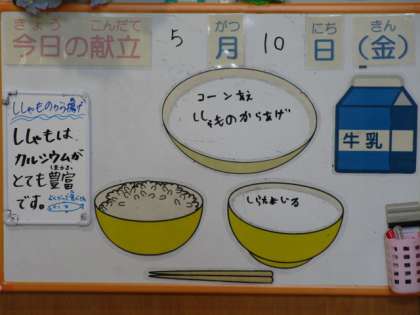 きょう こんだて がつ にち きん
今日の献立 5 月 10 日 (金)
コーン和え
ししゃものからあげ
牛乳
ししゃものから揚げ
ししゃもは、
カルシウムが
とても豊富
です。